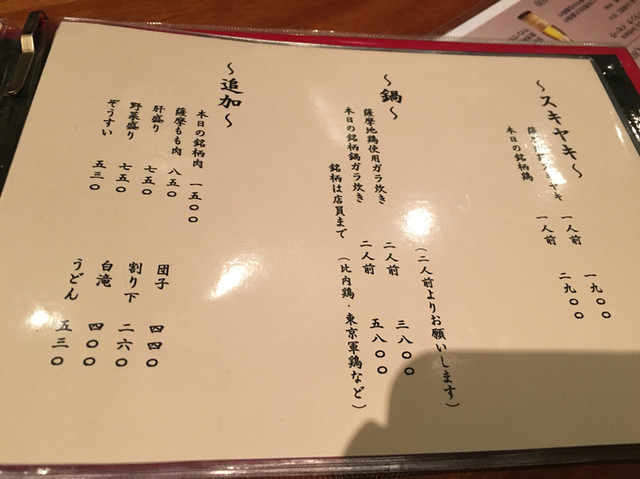 ～スキヤキ～
ヤキ 一人前 一九〇〇
本日の銘柄鶏 一人前 二九〇〇
～鍋～
（二人前よりお願いします）
薩摩地鶏使用ガラ炊き 二人前 三八〇〇
本日の銘柄鍋ガラ炊き 二人前 五八〇〇
銘柄は店員まで（比内鶏・東京軍鶏など）
～追加～
本日の銘柄肉 一五〇〇
薩摩もも肉 八五〇
肝盛り 七五〇
野菜盛り 七五〇
ぞうすい 五三〇
団子 四四〇
割り下 二六〇
白滝 四〇〇
うどん 五三〇